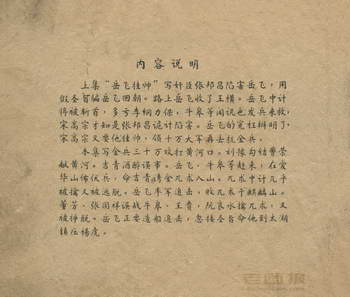 内容说明
上集“岳飞挂帅”写奸臣张邦昌陷害岳飞，用
假圣旨骗岳飞回朝。路上岳飞收了王横。岳飞中计
将被斩首，多亏李纲力保，牛皋等闻讯也发兵来救，
宋高宗才知是张邦昌诡计陷害。岳飞的冤枉辩明了，
宋高宗又要他挂帅，领十万大军再去抗金。
本集写金兵三十万攻打黄河口。刘豫勾结曹荣
献黄河。吉青酒醉误事。岳飞、牛皋等赶来，在爱
华山布伏兵，命吉青诱金兀术入山。兀术中计几乎
被擒，又被逃脱。岳飞率军追击，败兀术于麒麟山。
董芳、张国祥误战牛皋、王贵，阮良水擒兀术，又
被挣脱。岳飞正要造船追击，忽接圣旨命他到太湖
镇压杨虎。